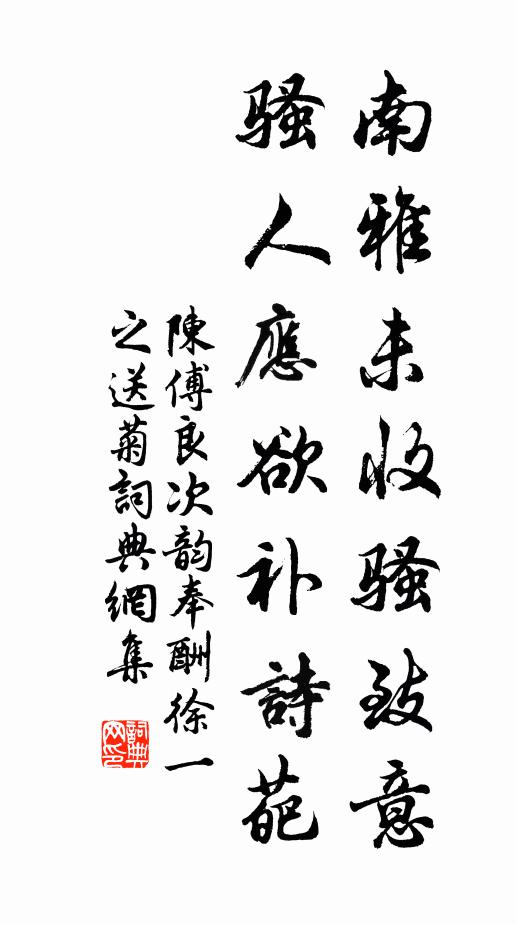 南雅未收骚致意
骚人應欲补詩葩
陳傅良次韵奉酬徐一
之送菊詞典網集
詞典网印